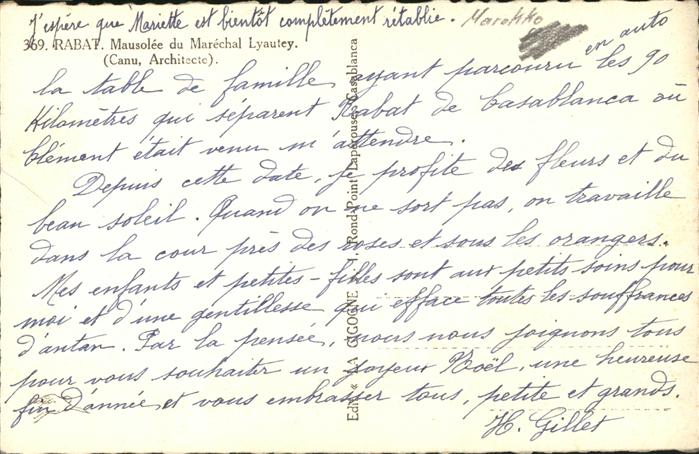 J'espère que Mariette est bientôt complètement rétablie.
Marokko
369. RABAT. Mausolée du Maréchal Lyautey.
(Canu, Architecte).
la table de famille ayant parcouru en auto les 90
Kilomètres qui séparent Rabat de Casablanca où
Clément était venu m'attendre.
Depuis cette date, je profite des fleurs et du
beau soleil. Quand on ne sort pas, on travaille
dans la cour près des roses et sous les orangers.
Mes enfants et petites-filles sont aux petits soins pour
moi et d'une gentillesse qui efface toutes les souffrances
d'antan. Par la pensée, nous nous joignons tous
pour vous souhaiter un joyeux Noël, une heureuse
fin d'année et vous embrasser tous, petits et grands.
H. Gillet
Edit. « LA CIGOGNE », Rond-Point Lapérouse, Casablanca